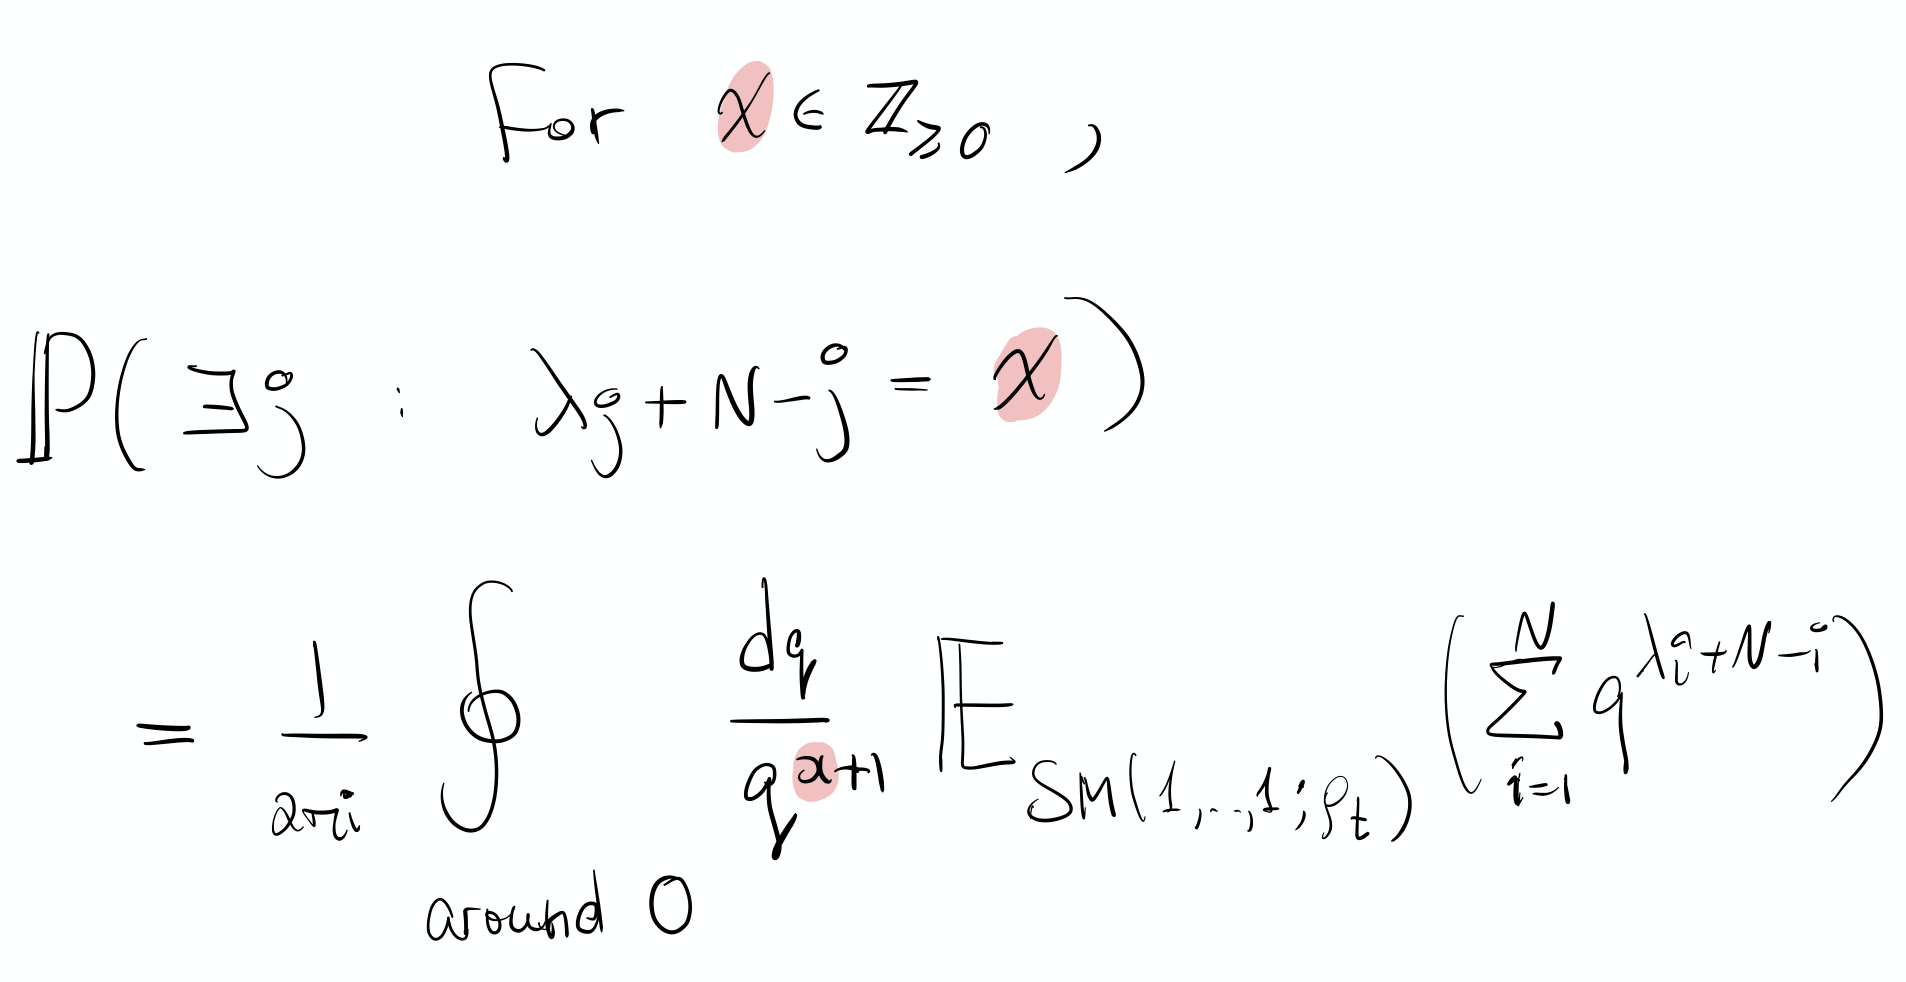 For x ∈ ℤ≥0 ,
ℙ( ∃j : λ_j + N - j = x )
= \frac{1}{2πi} ∮_{around 0} \frac{dq}{q^{x+1}} 𝔼_{SM(1,..,1;ρ_t)} ( \sum_{i=1}^{N} q^{λ_i+N-i} )